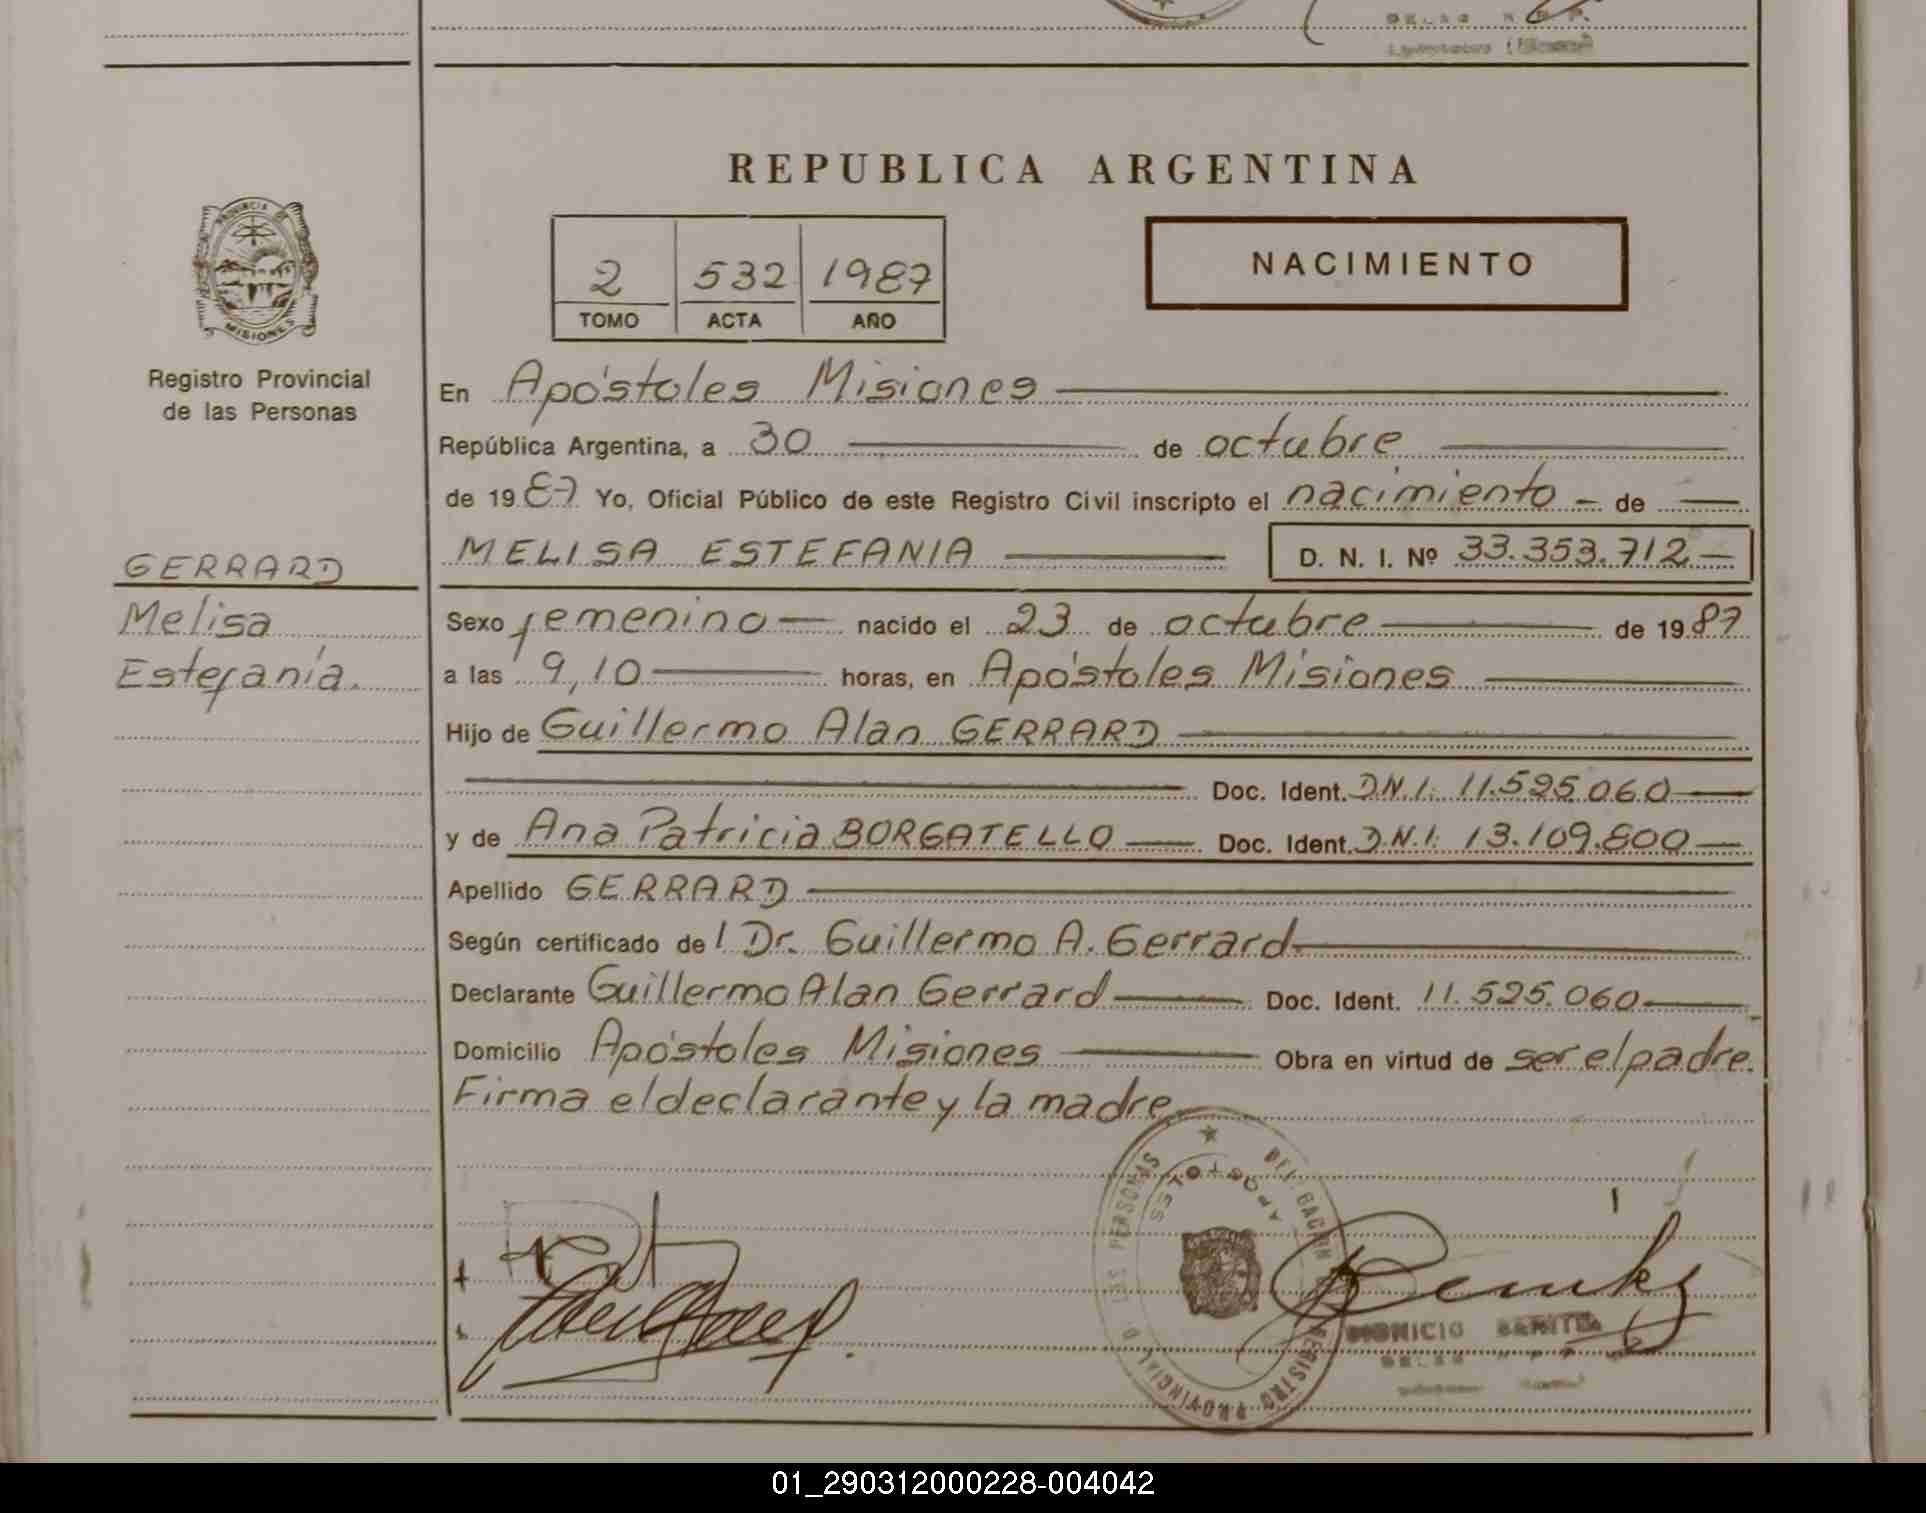 REPUBLICA ARGENTINA
PROVINCIA DE
MISIONES
Registro Provincial
de las Personas
2 532 1987
TOMO ACTA AÑO
NACIMIENTO
En Apóstoles Misiones
República Argentina, a 30 de octubre
de 1987 Yo, Oficial Público de este Registro Civil inscripto el nacimiento - de
MELISA ESTEFANIA D. N. I. Nº 33.353.712
GERRARD
Melisa
Estefanía.
Sexo femenino nacido el 23 de octubre de 1987
a las 9,10 horas, en Apóstoles Misiones
Hijo de Guillermo Alan GERRARD
Doc. Ident. D.N.I. 11.525.060
y de Ana Patricia BORGATELLO Doc. Ident. D.N.I. 13.109.800
Apellido GERRARD
Según certificado del Dr. Guillermo A. Gerrard
Declarante Guillermo Alan Gerrard Doc. Ident. 11.525.060
Domicilio Apóstoles Misiones Obra en virtud de ser el padre.
Firma el declarante y la madre
REGISTRO PROVINCIAL DE LAS PERSONAS
APOSTOLES
DIONICIO
01_290312000228-004042